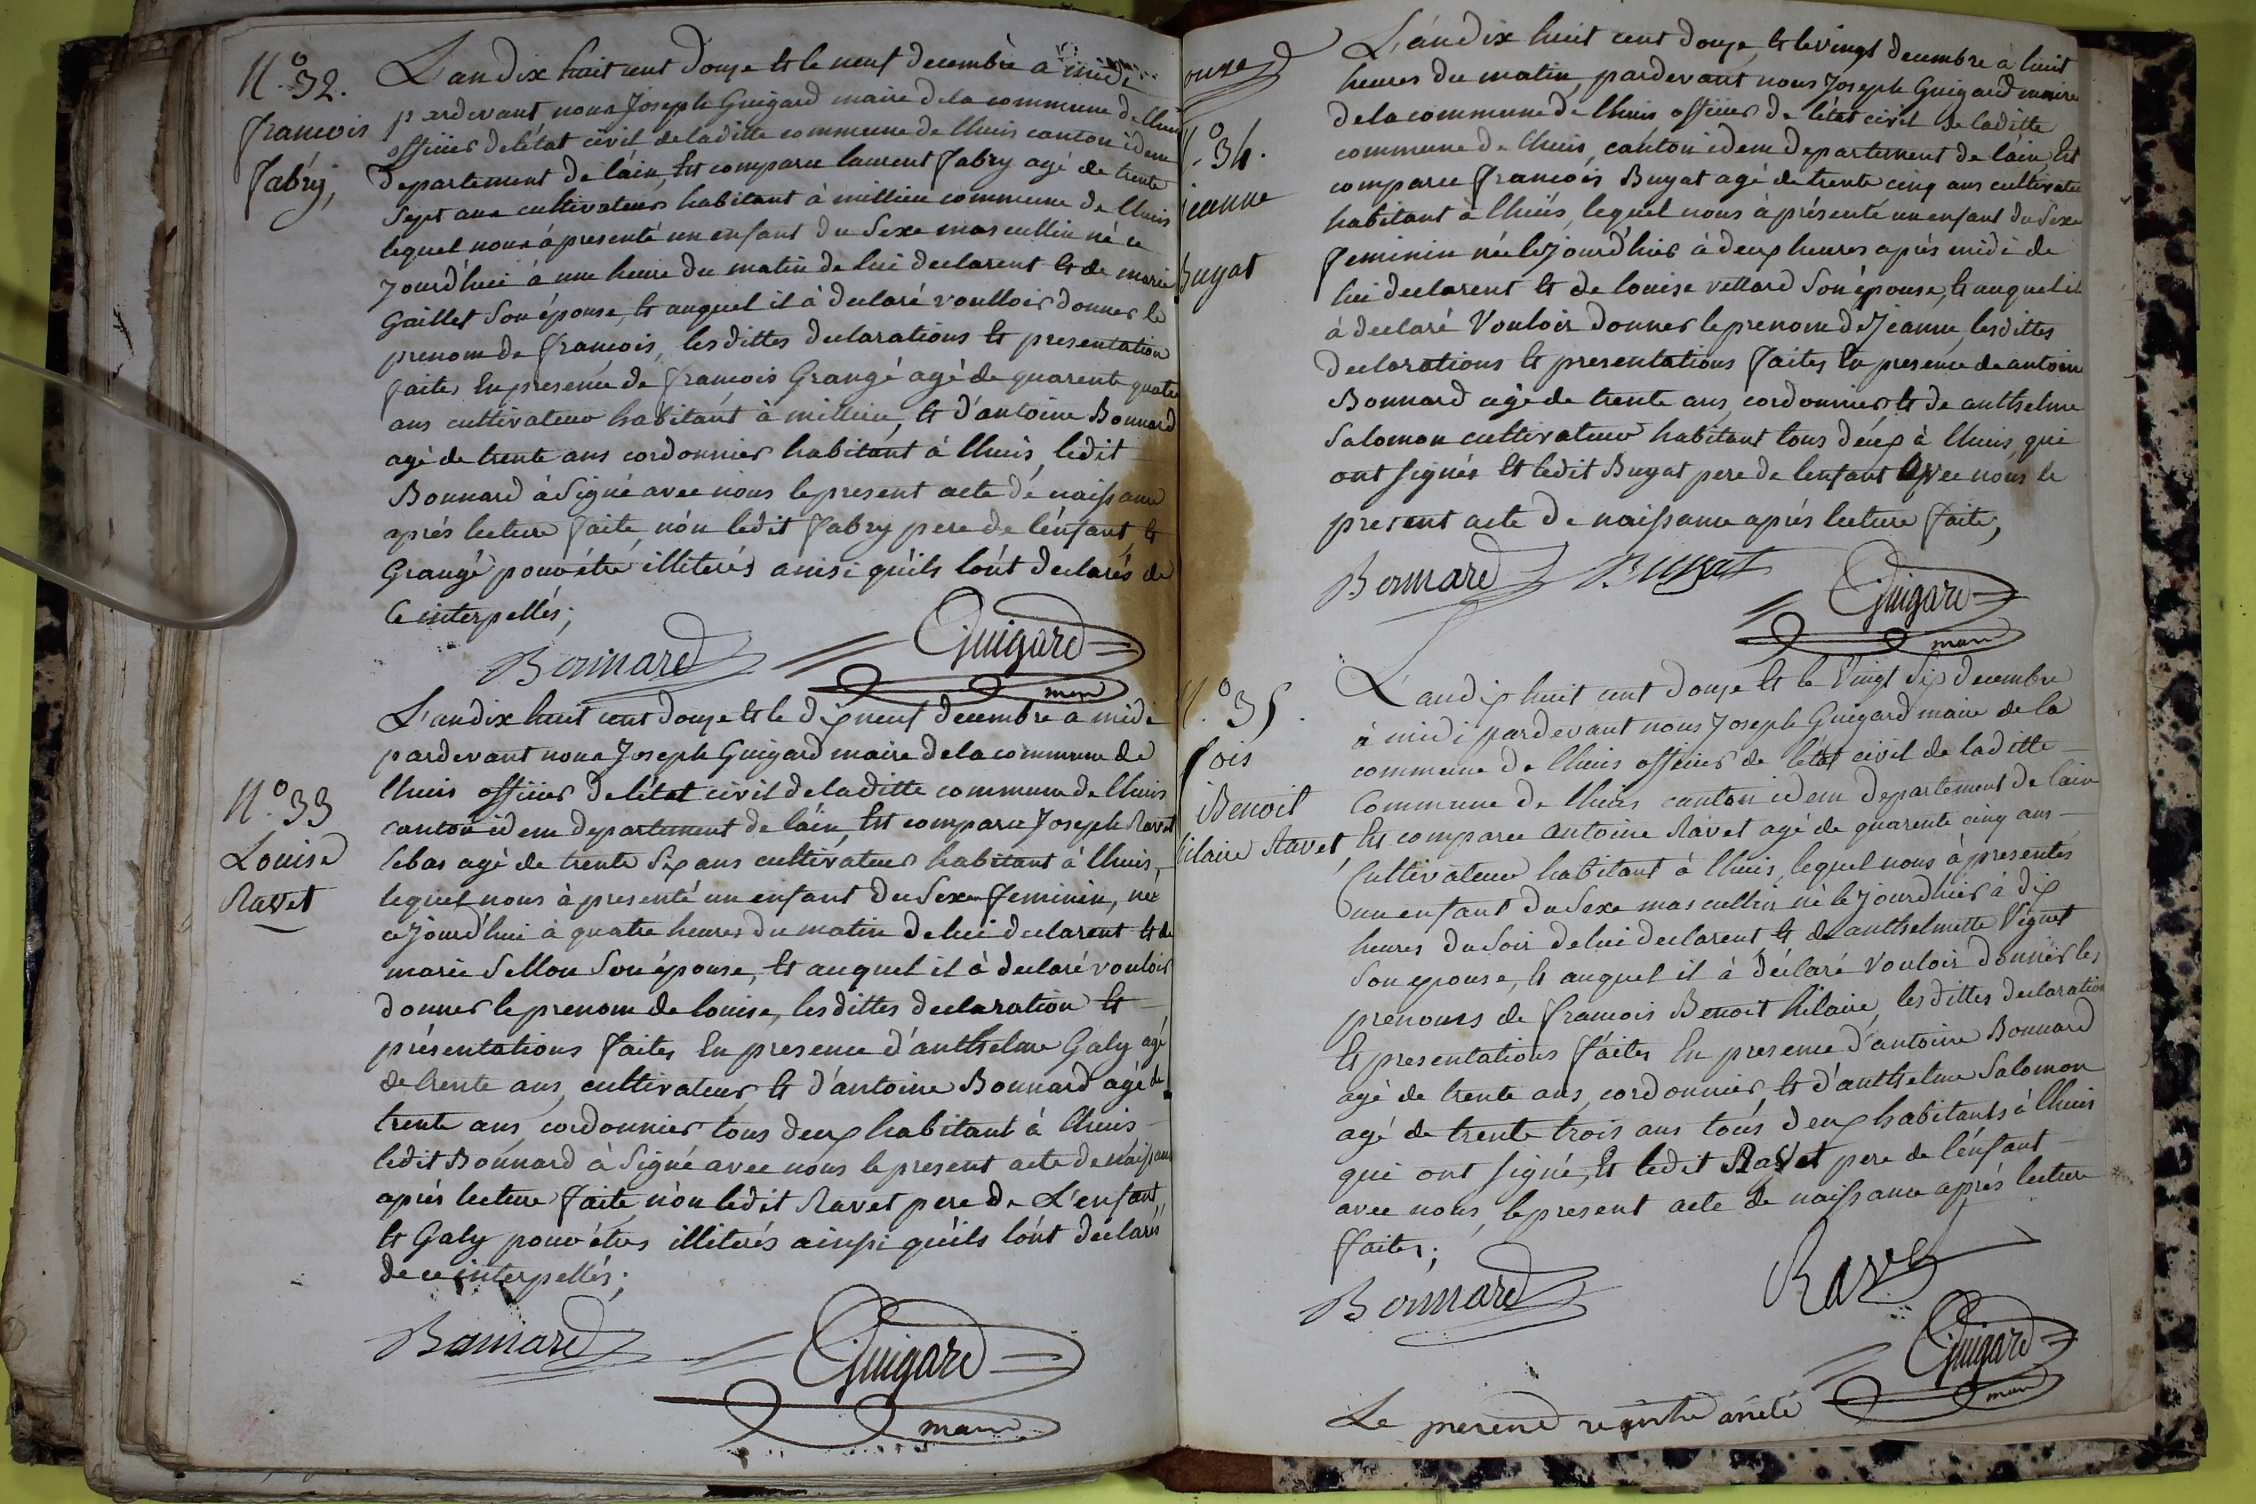 N.o 32.
francois
fabry,
L'an dix huit cent douze et le neuf decembre a midi
pardevant nous Joseph Guigard maire de la commune de lhuis
officier de létat civil de laditte commune de lhuis canton idem
departement de láin, Est comparu laurent fabry agé de trente
sept ans cultivateur habitant à millieu commune de lhuis
lequel nous à presenté un enfant du Sexe mascullin né ce
jourd'hui à une heure du matin de lui declarent et de marie
Gaillet Son épouse, et auquel il à declaré voulloir donner le
prenom de francois, lesdittes declarations et presentation
faites En presence de francois Grangé agé de quarente quatre
ans cultivateur habitant à millieu, et d'antoine Bonnard
agé de trente ans cordonnier habitant à lhuis, ledit
Bonnard à Signé avec nous le present acte de naissance
aprés lecture faite, nón ledit fabry pere de lénfant, et
Grangé pour étre illiterés ainsi quíls lónt declarés de
ce interpellés;
Bonnard Guigard
maire
N.o 33
Louise
Ravet
L'an dix huit cent douze et le dix neuf decembre a midi
pardevant nous Joseph Guigard maire de la commune de
lhuis officier de létat civil de laditte commune de lhuis
canton idem departement de láin, Est comparu Joseph Ravet
lebas agé de trente Six ans cultivateur habitant à lhuis,
lequel nous à presenté un enfant du Sexe feminin, née
cejourd'hui à quatre heures du matin de lui declarent et de
marie Sellon Son épouse, et auquel il à declaré vouloir
donner le prenom de louise, lesdittes declaration et
présentations faites En presence d'anthelme Galy agé
de trente ans, cultivateur, et d'antoine Bonnard agé de
trente ans, cordonnier tous deux habitant à lhuis
ledit Bonnard à Signé avec nous le present acte de naissance
aprés lecture faite, nón ledit Ravet pere de L'enfant,
et Galy pour étres illiterés ainsi quíls lónt declarés
de ce interpellés;
Bonnard Guigard
maire
N.o 34.
jeanne
Buyat
L'an dix huit cent douze, et le vingt decembre à huit
heures du matin, pardevant nous Joseph Guigard maire
de la commune de lhuis officier de létat civil de laditte
commune de lhuis, canton idem departement de láin, Est
comparu francois Buyat agé de trente cinq ans cultivateur
habitant à lhuis, lequel nous à présenté un enfant du Sexe
feminin née le jourd'hier à deux heures aprés midi de
lui declarent et de louise vettard Son épouse, et auquel il
à declaré Vouloir donner le prenom de Jeanne, lesdittes
declarations et presentations faites En presence de antoine
Bonnard agé de trente ans, cordonnier, et de anthelme
Salomon cultivateur habitant tous deux à lhuis, qui
ont signés et ledit Buyat pere de lenfant avec nous le
present acte de naissance aprés lecture faite,
Bonnard Buyat Guigard
maire
N.o 35.
cois
Benoit
hilaire Ravet
L'an dix huit cent douze et le Vingt Six decembre
à midi pardevant nous Joseph Guigard maire de la
commune de lhuis officier de létat civil de laditte
Commune de lhuis canton idem departement de láin
Est comparu antoine Ravet agé de quarente cinq ans
Cultivateur habitant à lhuis, lequel nous à presentés
un enfant du Sexe mascullin né le jourdhier à dix
heures du Soir de lui declarent, et de anthelmette Vignet
Son epouse, et auquel il à déclaré Vouloir donner les
prenoms de francois Benoit hilaire, lesdittes declaration
Et presentations faites En presence d'antoine Bonnard
agé de trente ans, cordonnier, et d'anthelme Salomon
agé de trente trois ans tous deux habitants à lhuis
qui ont signé, Et ledit Ravet pere de lénfant
avec nous, le present acte de naissance aprés lecture
faite;
Bonnard Ravet
Guigard
maire
Le present registre arrêté